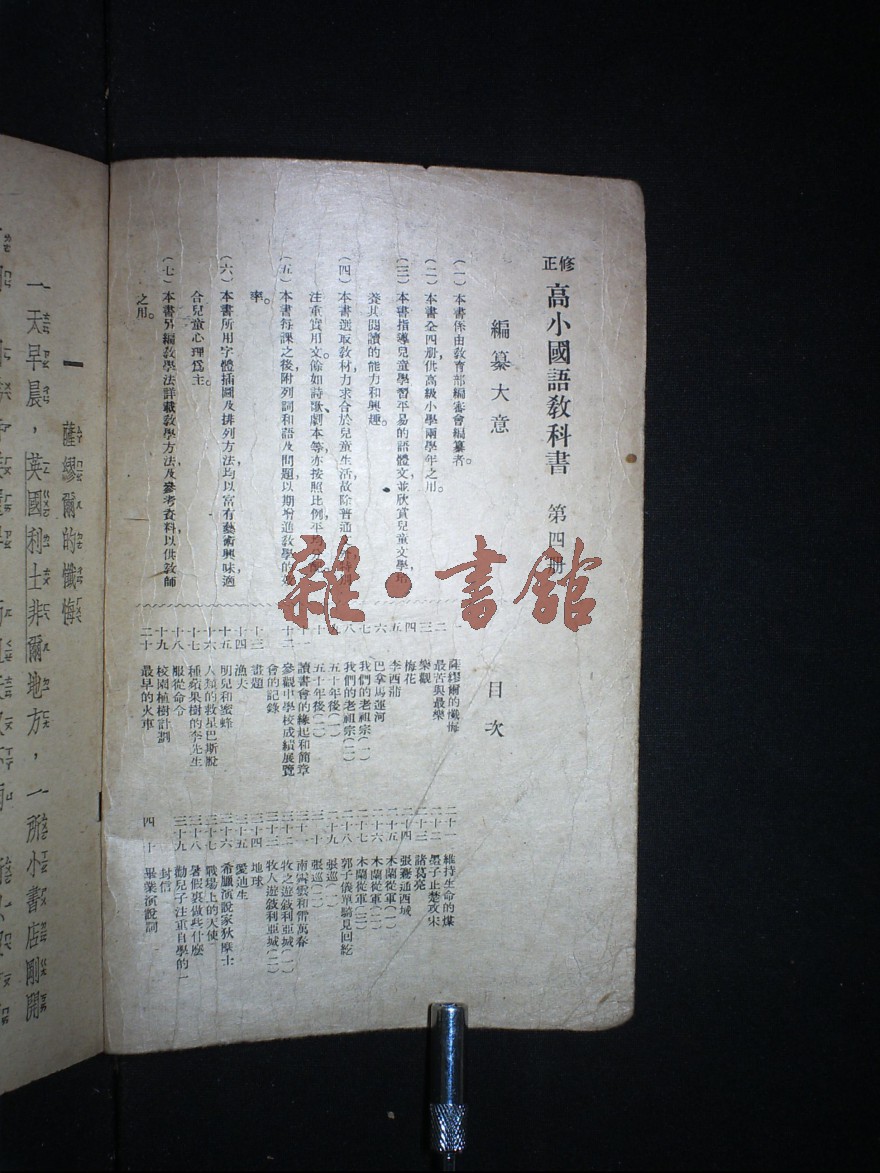 修正 高小國語教科書 第四册
編纂大意
(一)本書係由教育部編審會編纂者。
(二)本書全四册,供高級小學兩學年之用。
(三)本書指導兒童學習平易的語體文,並欣賞兒童文學,培
養其閱讀的能力和興趣。
(四)本書選取教材,力求合於兒童生活,故除普通
注重實用文。餘如詩歌劇本等,亦按照比例,平均分配。
(五)本書每課之後,附列詞和語及問題,以期增進教學的效
率。
(六)本書所用字體插圖及排列方法,均以富有藝術興味,適
合兒童心理爲主。
(七)本書另編教學法,詳載教學方法及參考資料,以供教師
之用。
雜·書舘
目次
一 薩繆爾的懺悔
二 最苦與最樂
三 樂觀
四 梅花
五 李西蒲
六 巴拿馬運河
七 我們的老祖宗(一)
八 我們的老祖宗(二)
九 五十年後(一)
十 五十年後(二)
十一 讀書會的緣起和簡章
十二 參觀中學校成績展覽
會的記錄
十三 畫題
十四 漁夫
十五 明兒和蜜蜂
十六 人類的救星巴斯脫
十七 種蘋果樹的李先生
十八 服從命令
十九 校園植樹計劃
二十 最早的火車
二十一 維持生命的煤
二十二 墨子止楚攻宋
二十三 諸葛亮
二十四 張騫通西域
二十五 木蘭從軍(一)
二十六 木蘭從軍(二)
二十七 木蘭從軍(三)
二十八 郭子儀單騎見回紇
二十九 張巡(一)
三十 張巡(二)
三十一 南霽雲和雷萬春
三十二 牧之遊敘利亞城(一)
三十三 牧人遊敘利亞城(二)
三十四 地球
三十五 愛迪生
三十六 希臘演說家狄摩士
三十七 戰場上的天使
三十八 暑假裏做些什麼
三十九 勸兒子注重自學的一
封信
四十 畢業演說詞
一 薩繆爾的懺悔
一天早晨,英國利士非爾地方,一所小書店剛開